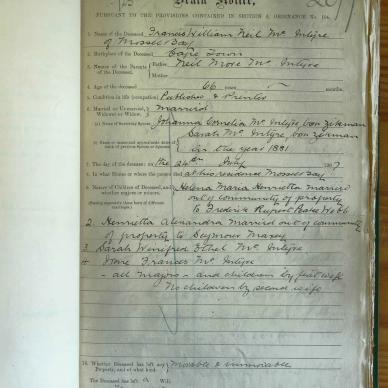 Death Notice,
PURSUANT TO THE PROVISIONS CONTAINED IN SECTION 9, ORDINANCE No. 104.
1. Name of the Deceased Francis William Neil Mc Intyre
of Mossel Bay
2. Birthplace of the Deceased Cape Town
3. Names of the Parents of the Deceased Father Neil More Mc Intyre
Mother
4. Age of the deceased 66 years months.
5. Condition in life (occupation) Publisher & Printer
6. Married or Unmarried, Widower or Widow, Married
(a) Name of Surviving Spouse Johanna Cornelia Mc Intyre
Sarah Mc Intyre
in the year 1881
7. The day of the decease: on the 24th July 190
8. In what House or where the person died at his residence Mossel Bay
9. Names of Children of Deceased, and whether majors or minors. Helena Maria Henrietta married
out of community of property
to Frederick Rupert Webb
2. Henrietta Alexandra married out of community
of property to Seymour Maxey
3 Sarah Winifred Ethel Mc Intyre
4 Frances Mc Intyre
- all majors - and children by first wife
No children by second wife
10. Whether Deceased has left any Property, and of what kind. Movable & immovable
The Deceased has left a Will.